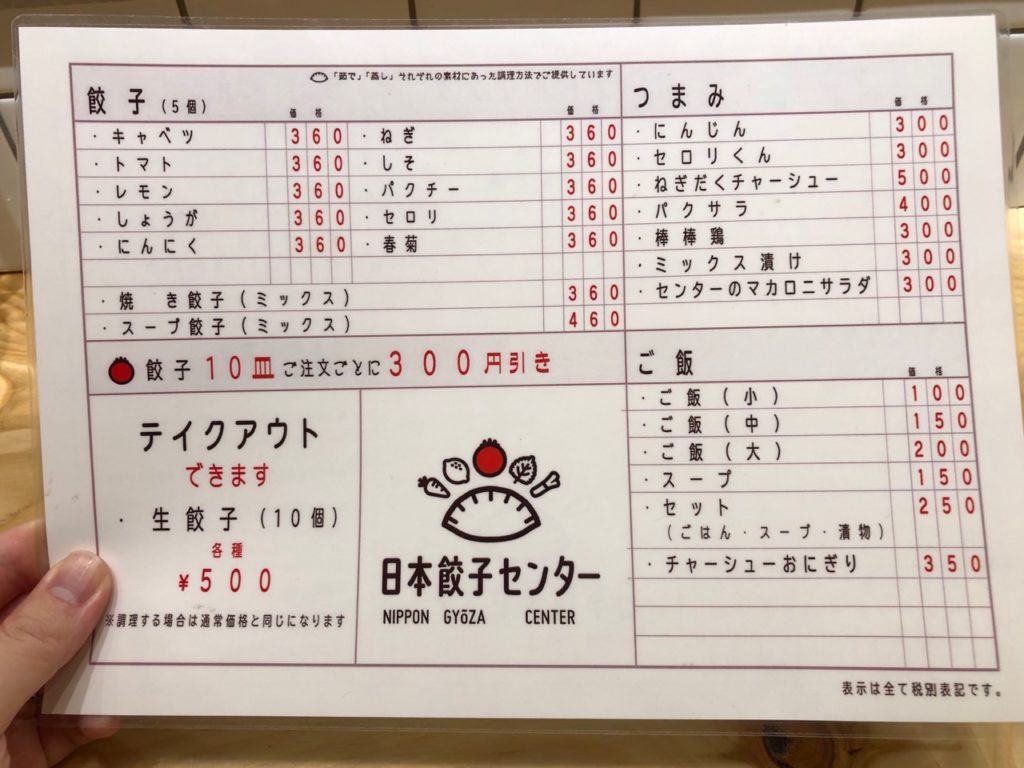 「茹で」「蒸し」それぞれの素材にあった調理方法でご提供しています
餃子(5個)
価格 価格
・キャベツ 360 ・ねぎ 360
・トマト 360 ・しそ 360
・レモン 360 ・パクチー 360
・しょうが 360 ・セロリ 360
・にんにく 360 ・春菊 360
・焼き餃子(ミックス) 360
・スープ餃子(ミックス) 460
餃子10皿ご注文ごとに300円引き
テイクアウト
できます
・生餃子(10個)
各種
¥500
※調理する場合は通常価格と同じになります
日本餃子センター
NIPPON GYōZA CENTER
つまみ 価格
・にんじん 300
・セロリくん 300
・ねぎだくチャーシュー 500
・パクサラ 400
・棒棒鶏 300
・ミックス漬け 300
・センターのマカロニサラダ 300
ご飯 価格
・ご飯(小) 100
・ご飯(中) 150
・ご飯(大) 200
・スープ 150
・セット 250
(ごはん・スープ・漬物)
・チャーシューおにぎり 350
表示は全て税別表記です。